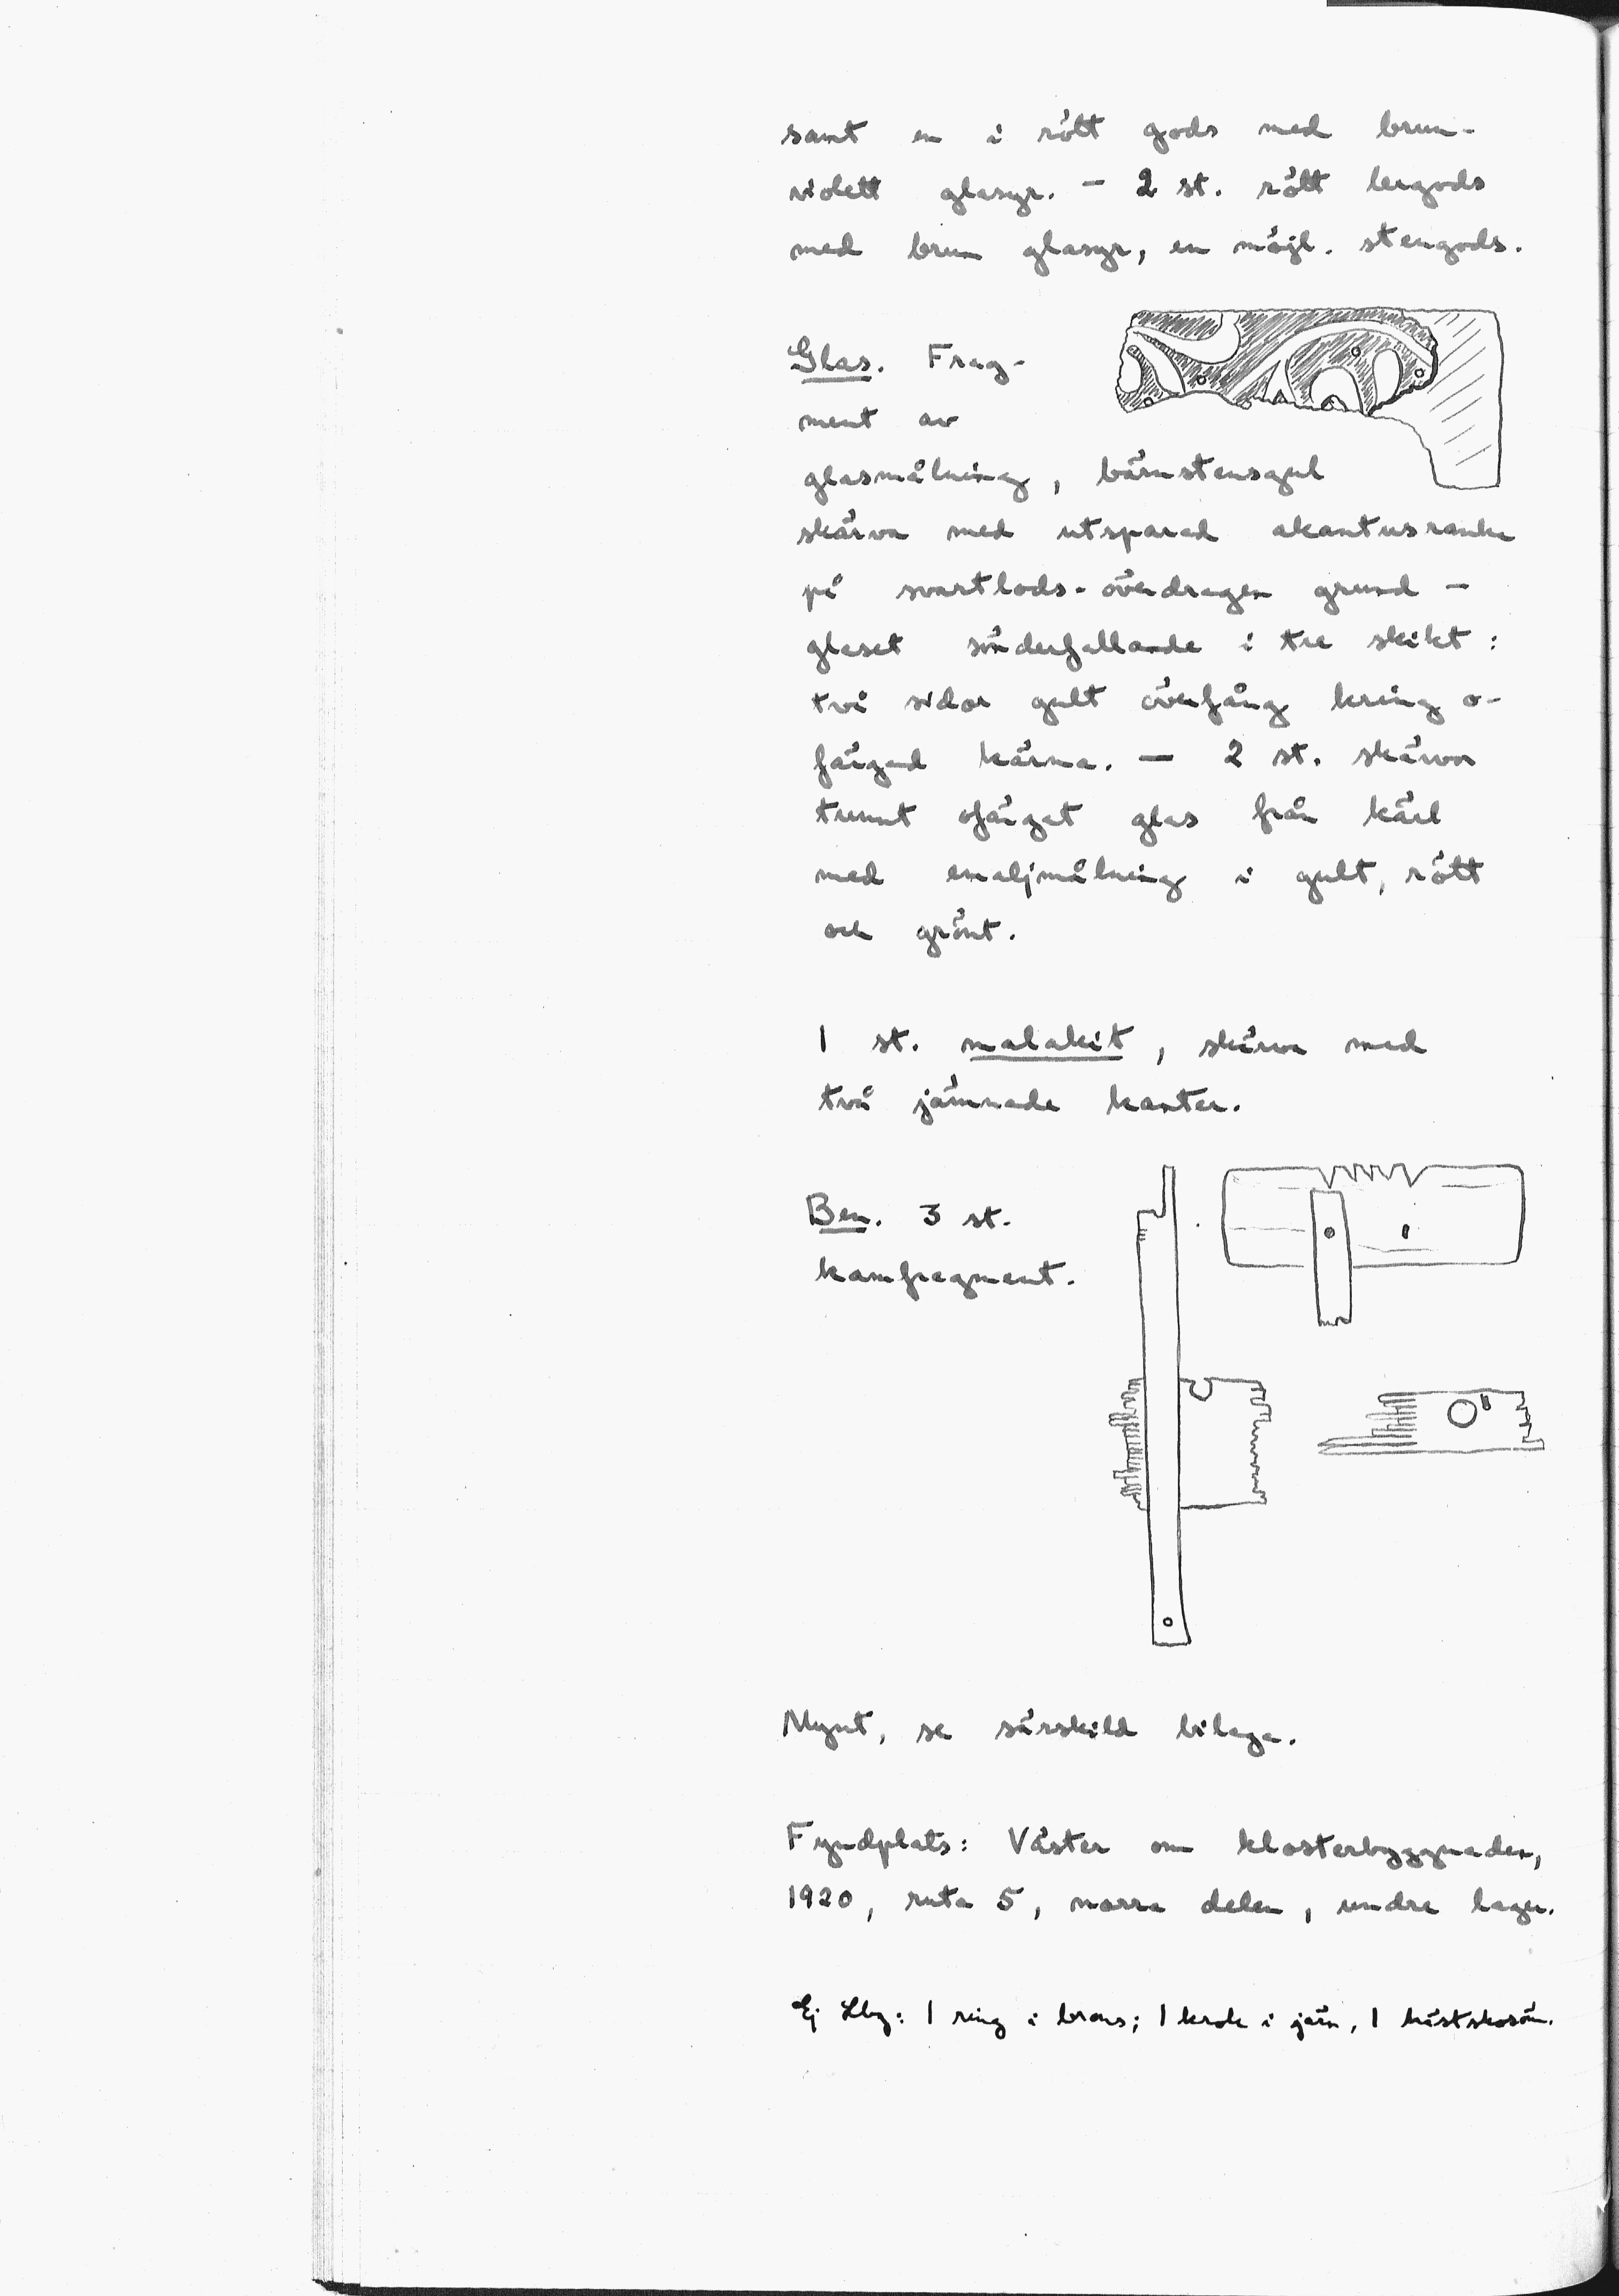 samt en i rött gods med brun-
violett glasyr. — 2 st. rött lergods
med brun glasyr, en möjl. stengods.
Glas. Frag-
ment av
glasmålning, bärnstensgul
skärva med utsparad akantusranka
på svartlods-överdragen grund —
glaset sönderfallande i tre skikt:
två sidor gult överfång kring o-
färgad kärna. — 2 st. skärvor
tunnt ofärgat glas från kärl
med emaljmålning i gult, rött
och grönt.
1 st. malakit, skärva med
två jämnade kanter.
Ben. 3 st.
kamfragment.
Mynt, se särskild bilaga.
Fyndplats: Väster om klosterbyggnaden,
1920, ruta 5, norra delen, undre lager.
Ej Lbg: 1 ring i brons; 1 krok i järn, 1 hästskosöm.